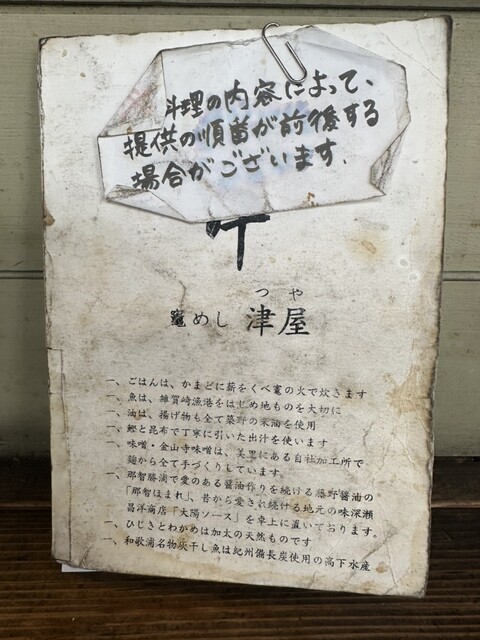 料理の内容によって、
提供の順番が前後する
場合がございます.
つや
竈めし 津屋
一、ごはんは、かまどに薪をくべ竈の火で炊きます
一、魚は、雑賀崎漁港をはじめ地ものを大切に
一、油は、揚げ物も全て築野の米油を使用
一、鰹と昆布で丁寧に引いた出汁を使います
一、味噌・金山寺味噌は、美里にある自社加工所で
麹から全て手づくりしています。
一、那智勝浦で愛のある醤油作りを続ける藤野醤油の
「那智ほまれ」、昔から愛され続ける地元の味深瀬
昌洋商店「大陽ソース」を卓上に置いております。
一、ひじきとわかめは加太の天然ものです
一、和歌浦名物灰干し魚は紀州備長炭使用の高下水産